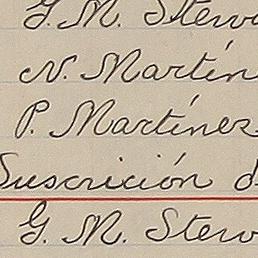 G. M. Stew
N. Martín
P. Martínez
Suscrición d
G. M. Stew